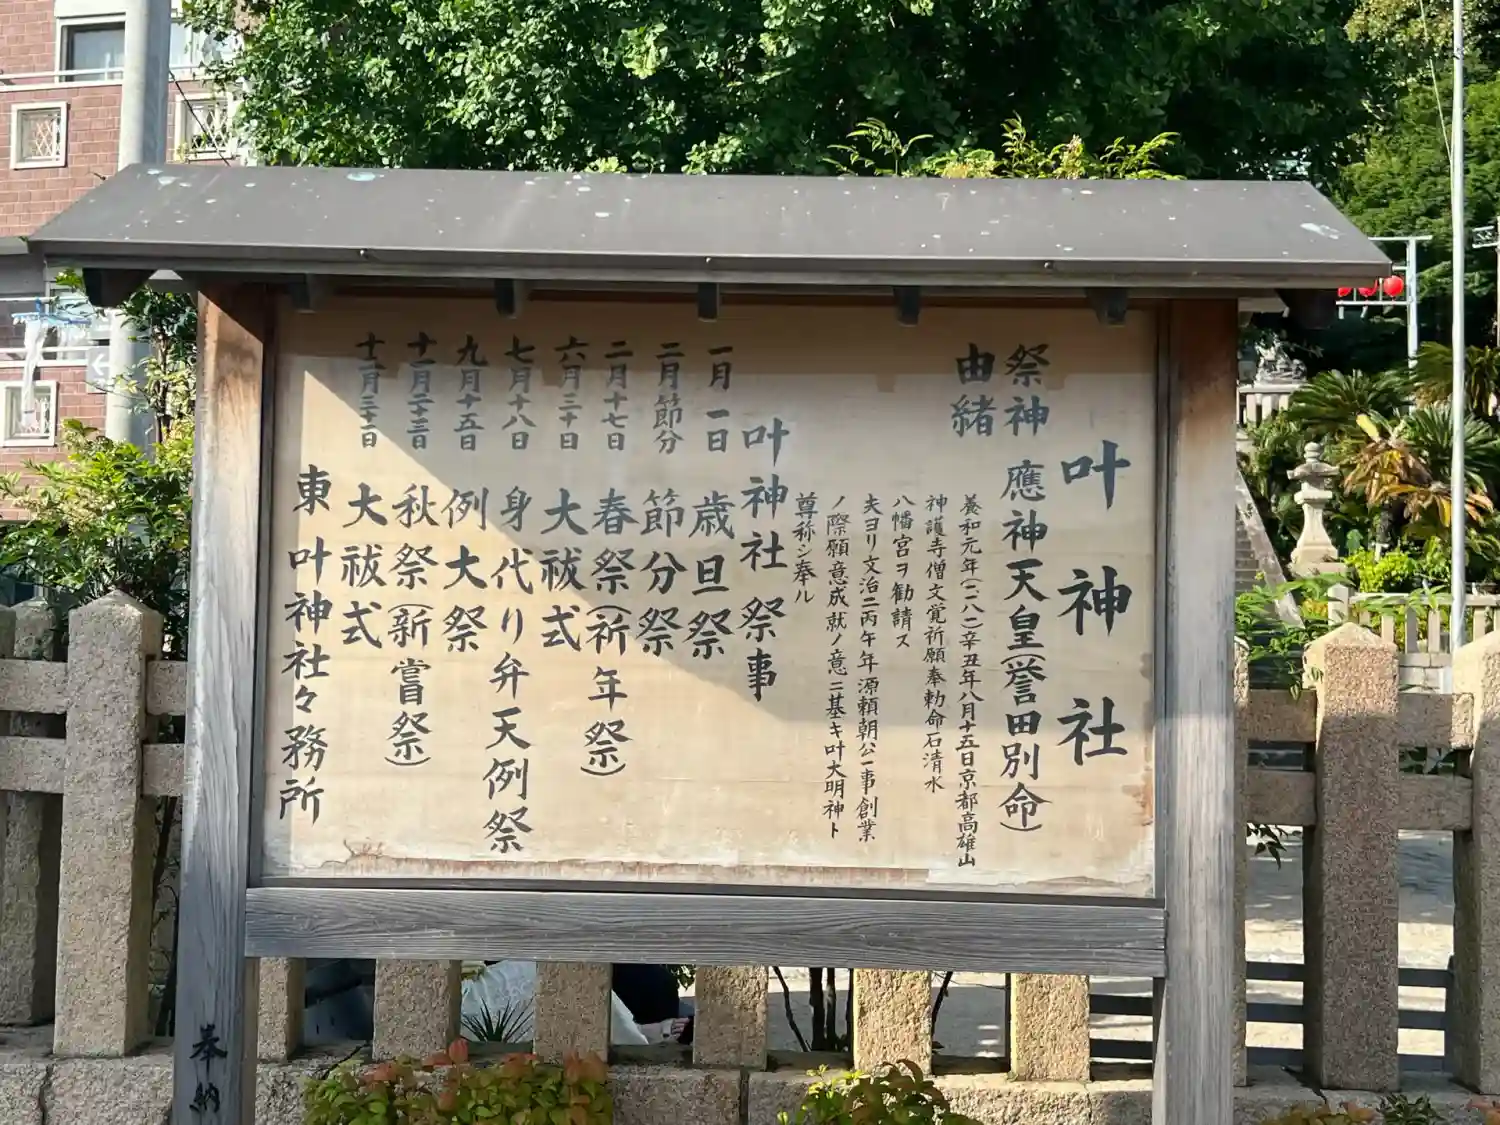 叶神社
祭神 應神天皇(誉田別命)
由緒
養和元年(一一八一)辛丑年八月十五日京都高雄山
神護寺僧文覚祈願奉勅命石清水
八幡宮ヲ勧請ス
夫ヨリ文治二丙午年源頼朝公一事創業
ノ際願意成就ノ意ニ基キ叶大明神ト
尊称シ奉ル
叶神社 祭事
一月一日 歳旦祭
二月節分 節分祭
二月十七日 春祭(祈年祭)
六月三十日 大祓式
七月十八日 身代り弁天例祭
九月十五日 例大祭
十一月二十三日 秋祭(新嘗祭)
十二月三十一日 大祓式
東 叶神社々務所
奉納